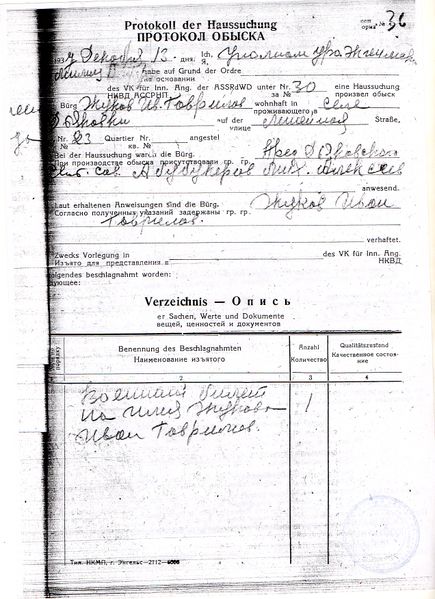 Protokoll der Haussuchung
ПРОТОКОЛ ОБЫСКА
36
1937 Декабря 13 дня. Ich, Я,
habe auf Grund der Ordre
на основании
des VK für Inn. Ang. der ASSRdWD unter Nr. 30 eine Haussuchung
НКВД АССРНП за № произвел обыск
Bürg Жуков Ив. Гаврилов wohnhaft in селе
проживающего в
auf der Straße,
на улице
Nr. 23 Quartier Nr. angestel
№ кв. №
Bei der Haussuchung waren die Bürg.
При производстве обыска присутствовали гр. гр.
anwesend.
Laut erhaltenen Anweisungen sind die Bürg. Жуков Иван
Согласно полученных указаний задержаны гр. гр.
Гаврилов.
verhaftet.
Zwecks Vorlegung in des VK für Inn. Ang.
Изъято для представления в НКВД
olgendes beschlagnahmt worden:
дующее:
Verzeichnis — Опись
er Sachen, Werte und Dokumente
вещей, ценностей и документов
порядку
Benennung des Beschlagnahmten
Наименование изъятого
Anzahl
Количество
Qualitätszustand
Качественное состоя-
ние
2 3 4
Военный билет 1
на имя Жукова
Иван Гаврилов.
Тип. НКМП, г. Энгельс—2112—